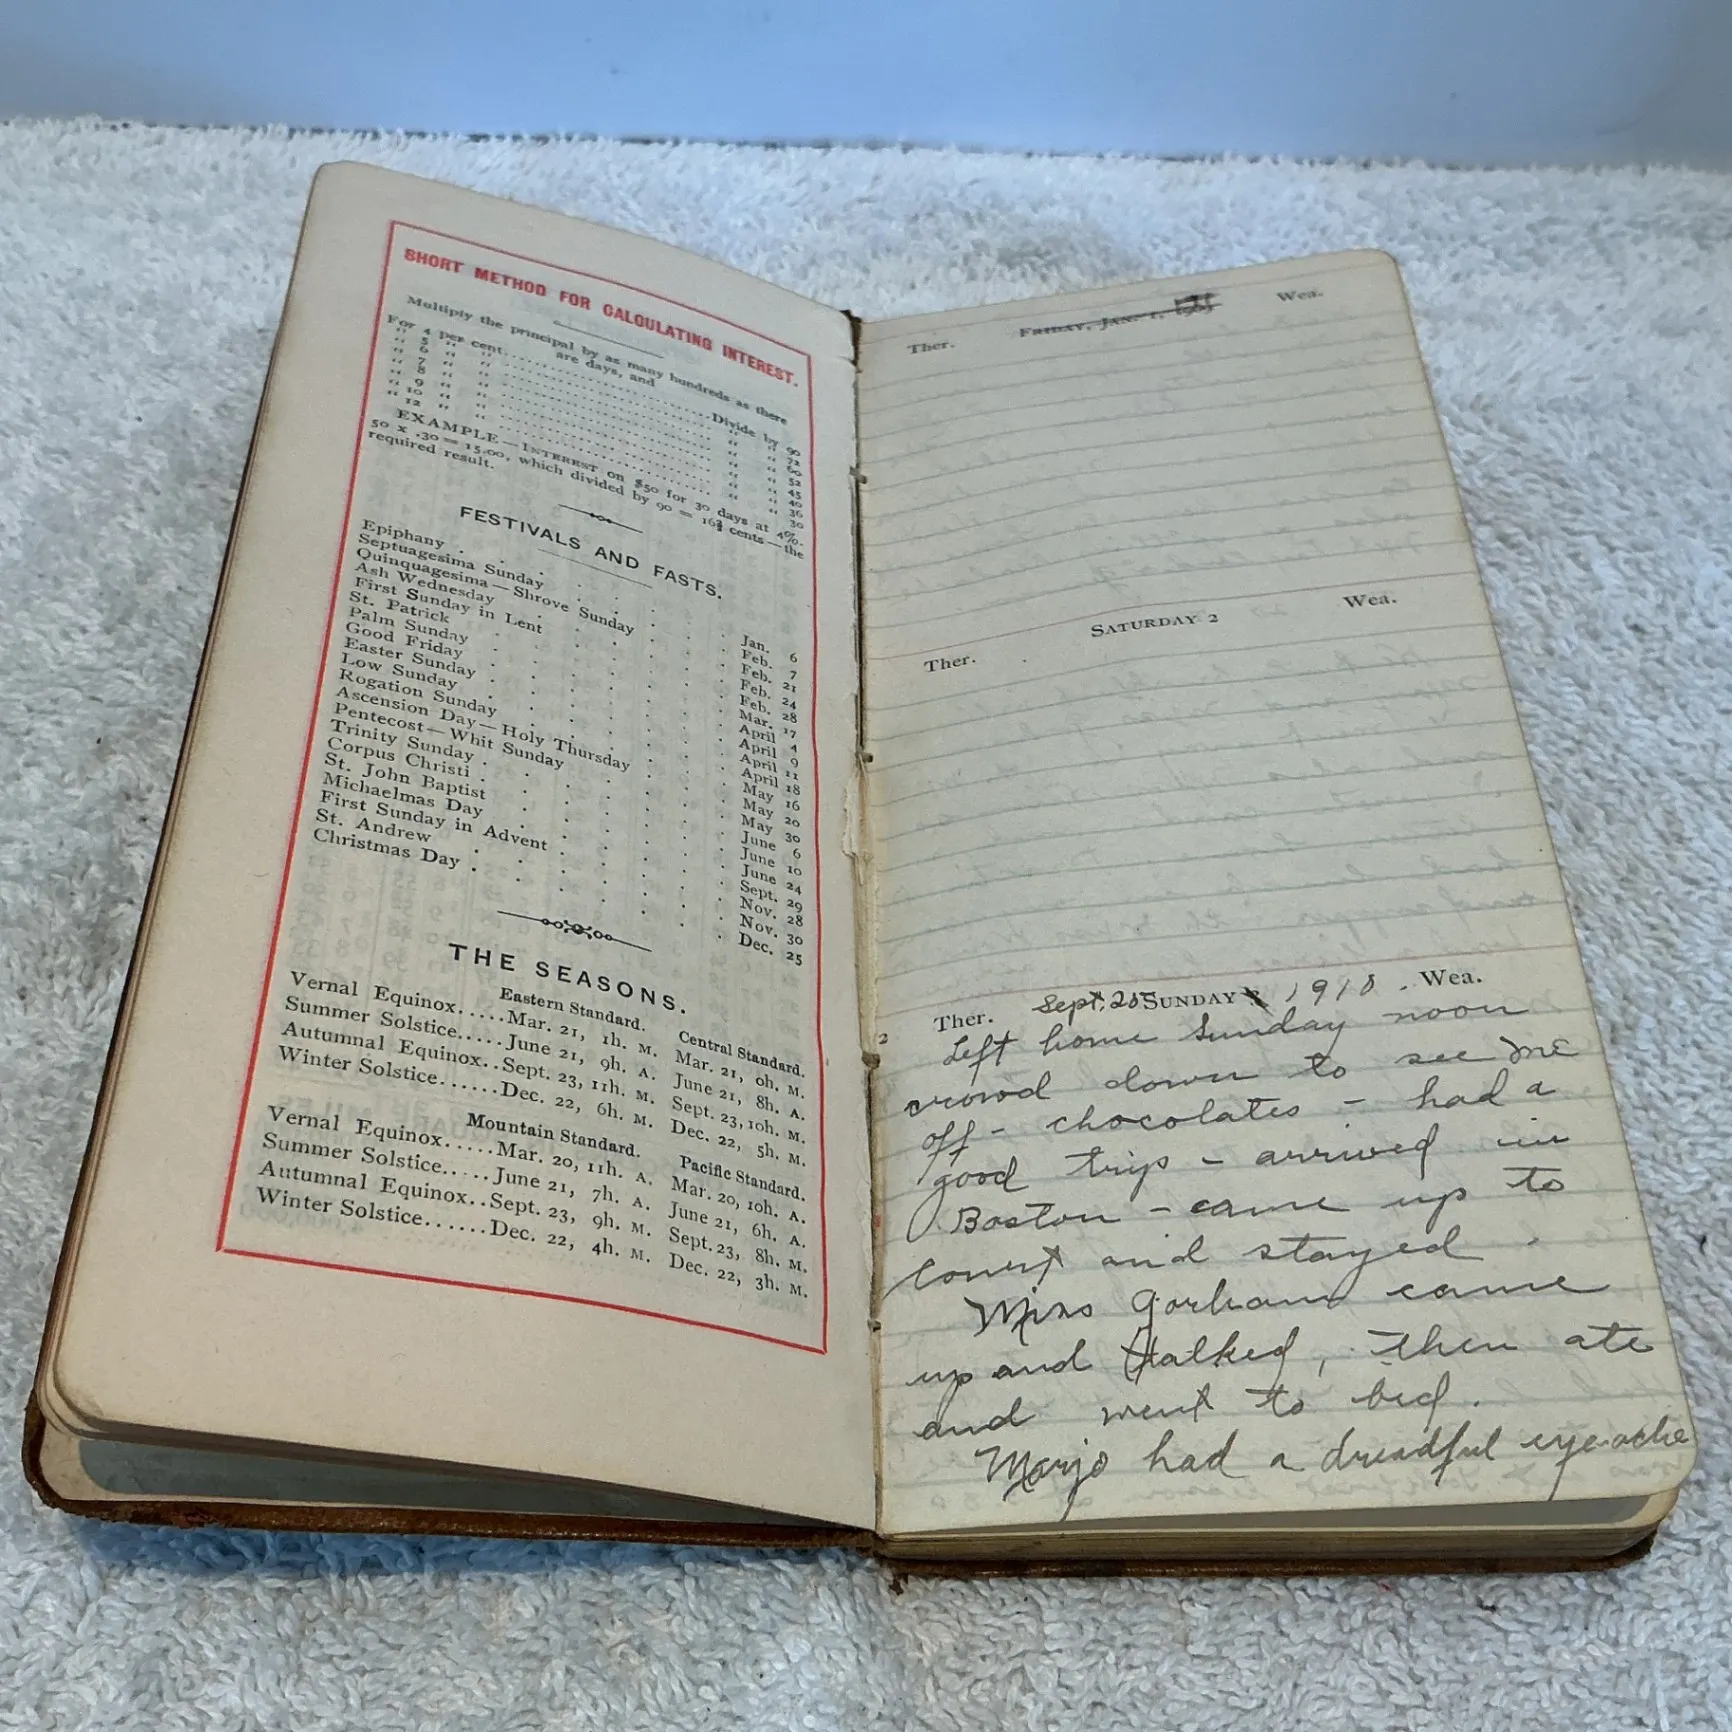 SHORT METHOD FOR CALCULATING INTEREST.
Multiply the principal by as many hundreds as there
are days, and
For 4 per cent. Divide by 90
" 5 " " " " 72
" 6 " " " " 60
" 7 " " " " 52
" 8 " " " " 45
" 9 " " " " 40
" 10 " " " " 36
" 12 " " " " 30
EXAMPLE—INTEREST on $50 for 30 days at 4%.
50 x .30 = 15.00, which divided by 90 = 16⅔ cents—the
required result.
FESTIVALS AND FASTS.
Epiphany . . . . Jan. 6
Septuagesima Sunday . . . Feb. 7
Quinquagesima—Shrove Sunday . . Feb. 21
Ash Wednesday . . . . Feb. 24
First Sunday in Lent . . . Feb. 28
St. Patrick . . . . Mar. 17
Palm Sunday . . . . April 4
Good Friday . . . . April 9
Easter Sunday . . . . April 11
Low Sunday . . . . April 18
Rogation Sunday . . . May 16
Ascension Day—Holy Thursday . . May 20
Pentecost—Whit Sunday . . . May 30
Trinity Sunday . . . . June 6
Corpus Christi . . . . June 10
St. John Baptist . . . . June 24
Michaelmas Day . . . . Sept. 29
First Sunday in Advent . . . Nov. 28
St. Andrew . . . . Nov. 30
Christmas Day . . . . Dec. 25
THE SEASONS.
Eastern Standard. Central Standard.
Vernal Equinox.....Mar. 21, 1h. M. Mar. 21, 0h. M.
Summer Solstice.....June 21, 9h. A. June 21, 8h. A.
Autumnal Equinox..Sept. 23, 11h. M. Sept. 23, 10h. M.
Winter Solstice......Dec. 22, 6h. M. Dec. 22, 5h. M.
Mountain Standard. Pacific Standard.
Vernal Equinox.....Mar. 20, 11h. A. Mar. 20, 10h. A.
Summer Solstice.....June 21, 7h. A. June 21, 6h. A.
Autumnal Equinox..Sept. 23, 9h. M. Sept. 23, 8h. M.
Winter Solstice......Dec. 22, 4h. M. Dec. 22, 3h. M.
Ther. FRIDAY, JAN. 1, Wea.
Ther. SATURDAY 2 Wea.
Ther. Sept. SUNDAY 1910. Wea.
Left home Sunday noon
crowd down to see me
off - chocolates - had a
good trip - arrived in
Boston - came up to
court and stayed.
Miss Gorham came
up and talked, then ate
and went to bed.
Marjo had a dreadful eye-ache